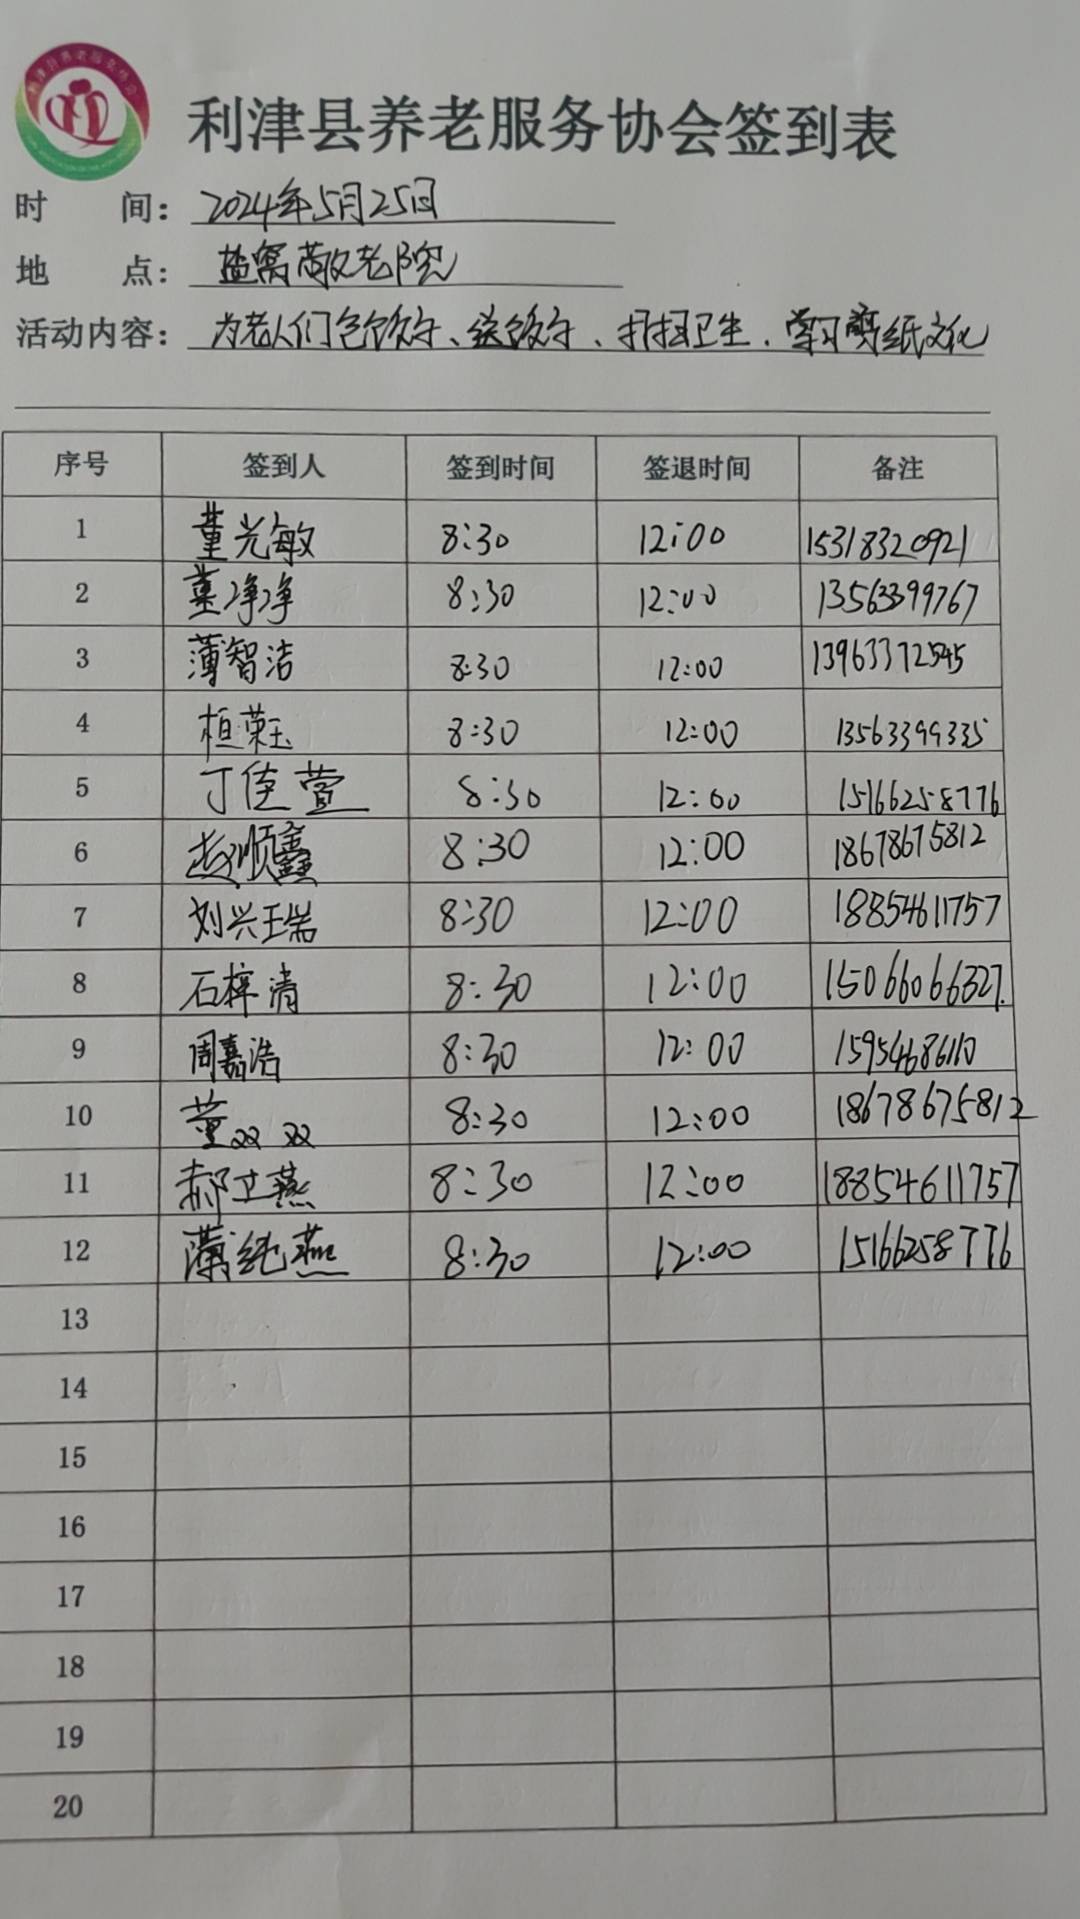 利津县养老服务协会
利津县养老服务协会签到表
时 间： 2024年5月25日
地 点： 盐窝敬老院
活动内容： 为老人们包饺子、送饺子、打扫卫生、学习剪纸文化
序号 签到人 签到时间 签退时间 备注
1 董光敏 8:30 12:00 15318320921
2 董净净 8:30 12:00 13563399767
3 薄智洁 8:30 12:00 13963372545
4 桓荣玉 8:30 12:00 13563399335
5 丁佳萱 8:30 12:00 15166258776
6 赵顺鑫 8:30 12:00 18678675812
7 刘兴瑞 8:30 12:00 18854611757
8 石梓清 8:30 12:00 15066066327.
9 周嘉浩 8:30 12:00 15954686110
10 董双双 8:30 12:00 18678675812
11 郝卫燕 8:30 12:00 18854611757
12 薄纯燕 8:30 12:00 15166258776
13
14
15
16
17
18
19
20